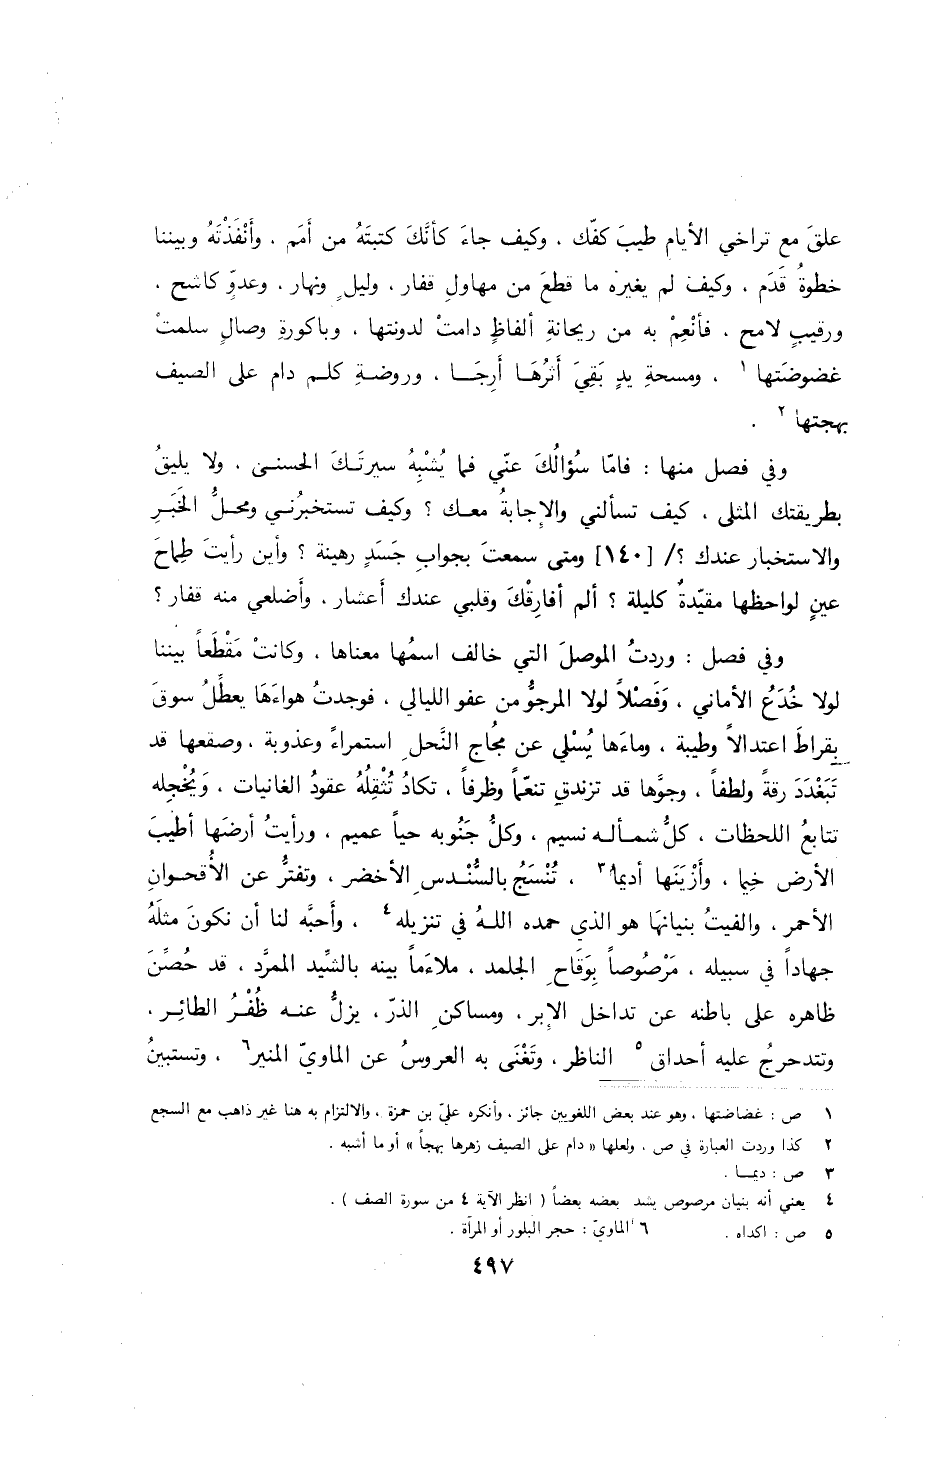 علقَ مع تراخي الأيام طيبَ كفّك ، وكيف جاءَ كأنَّكَ كتبتَهُ من أَمَم ، وأَنْفَذْتَهُ وبيننا
خطوةُ قَدَم ، وكيف لم يغيره ما قطعَ من مهاولِ قفار ، وليلٍ ونهار ، وعدوٍّ كاشح ،
ورقيبٍ لامح ، فأنْعِمْ به من ريحانةِ ألفاظٍ دامتْ لدونتها ، وباكورةِ وصالٍ سلمتْ
غضوضَتها ١ ، ومسحةِ يدٍ بَقِيَ أَثرُهَا أَرِجَا ، وروضةِ كلم دام على الصيف
بهجتها ٢ .
وفي فصل منها : فامّا سُؤالُكَ عنّي فما يُشْبِهُ سيرتَكَ الحسنى ، ولا يليقُ
بطريقتك المثلى ، كيف تسألني والإجابةُ معك ؟ وكيف تستخبرُني ومحلُّ الخَبَرِ
والاستخبار عندك ؟/ [١٤٠] ومتى سمعتَ بجوابِ جَسَدٍ رهينة ؟ وأين رأيتَ طِماحَ
عينٍ لواحظها مقيّدةٌ كليلة ؟ ألم أفارقْكَ وقلبي عندك أعشار ، وأضلعي منه قفار ؟
وفي فصل : وردتُ الموصلَ التي خالف اسمُها معناها ، وكانتْ مَقْطَعاً بيننا
لولا خُدَعُ الأماني ، وَفَصْلاً لولا المرجوُّ من عفو الليالي ، فوجدتُ هواءَهَا يعطّلُ سوقَ
بقراطَ اعتدالاً وطيبة ، وماءَها يُسْلي عن مُجاجِ النَّحل استمراءً وعذوبة ، وصقعها قد
تَبَغْدَدَ رقةً ولطفاً ، وجوَّها قد تزندق تنعّماً وظرفاً ، تكادُ تُثْقِلُهُ عقودُ الغانيات ، وَيُخْجِله
تتابعُ اللحظات ، كلُّ شمأله نسيم ، وكلُّ جَنُوبه حياً عميم ، ورأيتُ أرضَها أطيبَ
الأرض خِيما ، وأَزْيَنَها أديمًا٣ ، تُنْسَجُ بالسُّنْدس الأخضر ، وتفترُّ عن الأُقحوانِ
الأحمر ، والفيتُ بنيانهَا هو الذي حمده اللهُ في تنزيله ٤ ، وأَحبَّه لنا أن نكونَ مثلَهُ
جهاداً في سبيله ، مَرْصُوصاً بِوَقَاحِ الجلمد ، ملاءَماً بينه بالشِّيد الممرَّد ، قد حُصِّنَ
ظاهره على باطنه عن تداخل الإبر ، ومساكن الذرّ ، يزلُّ عنه ظُفْرُ الطائِر ،
وتتدحرجُ عليه أحداق ٥ الناظر ، وتَغْنَى به العروسُ عن الماويّ المنير٦ ، وتستبينُ
١ ص : غضاضتها ، وهو عند بعض اللغويين جائز ، وأنكره عليّ بن حمزة ، والالتزام به هنا غير ذاهب مع السجع
٢ كذا وردت العبارة في ص ، ولعلها « دام على الصيف زهرها بهجاً » أو ما أشبه .
٣ ص : ديما .
٤ يعني أنه بنيان مرصوص يشد بعضه بعضاً ( انظر الآية ٤ من سورة الصف ) .
٥ ص : اكداه . ٦ الماويّ : حجر البلور أو المرآة .
٤٩٧